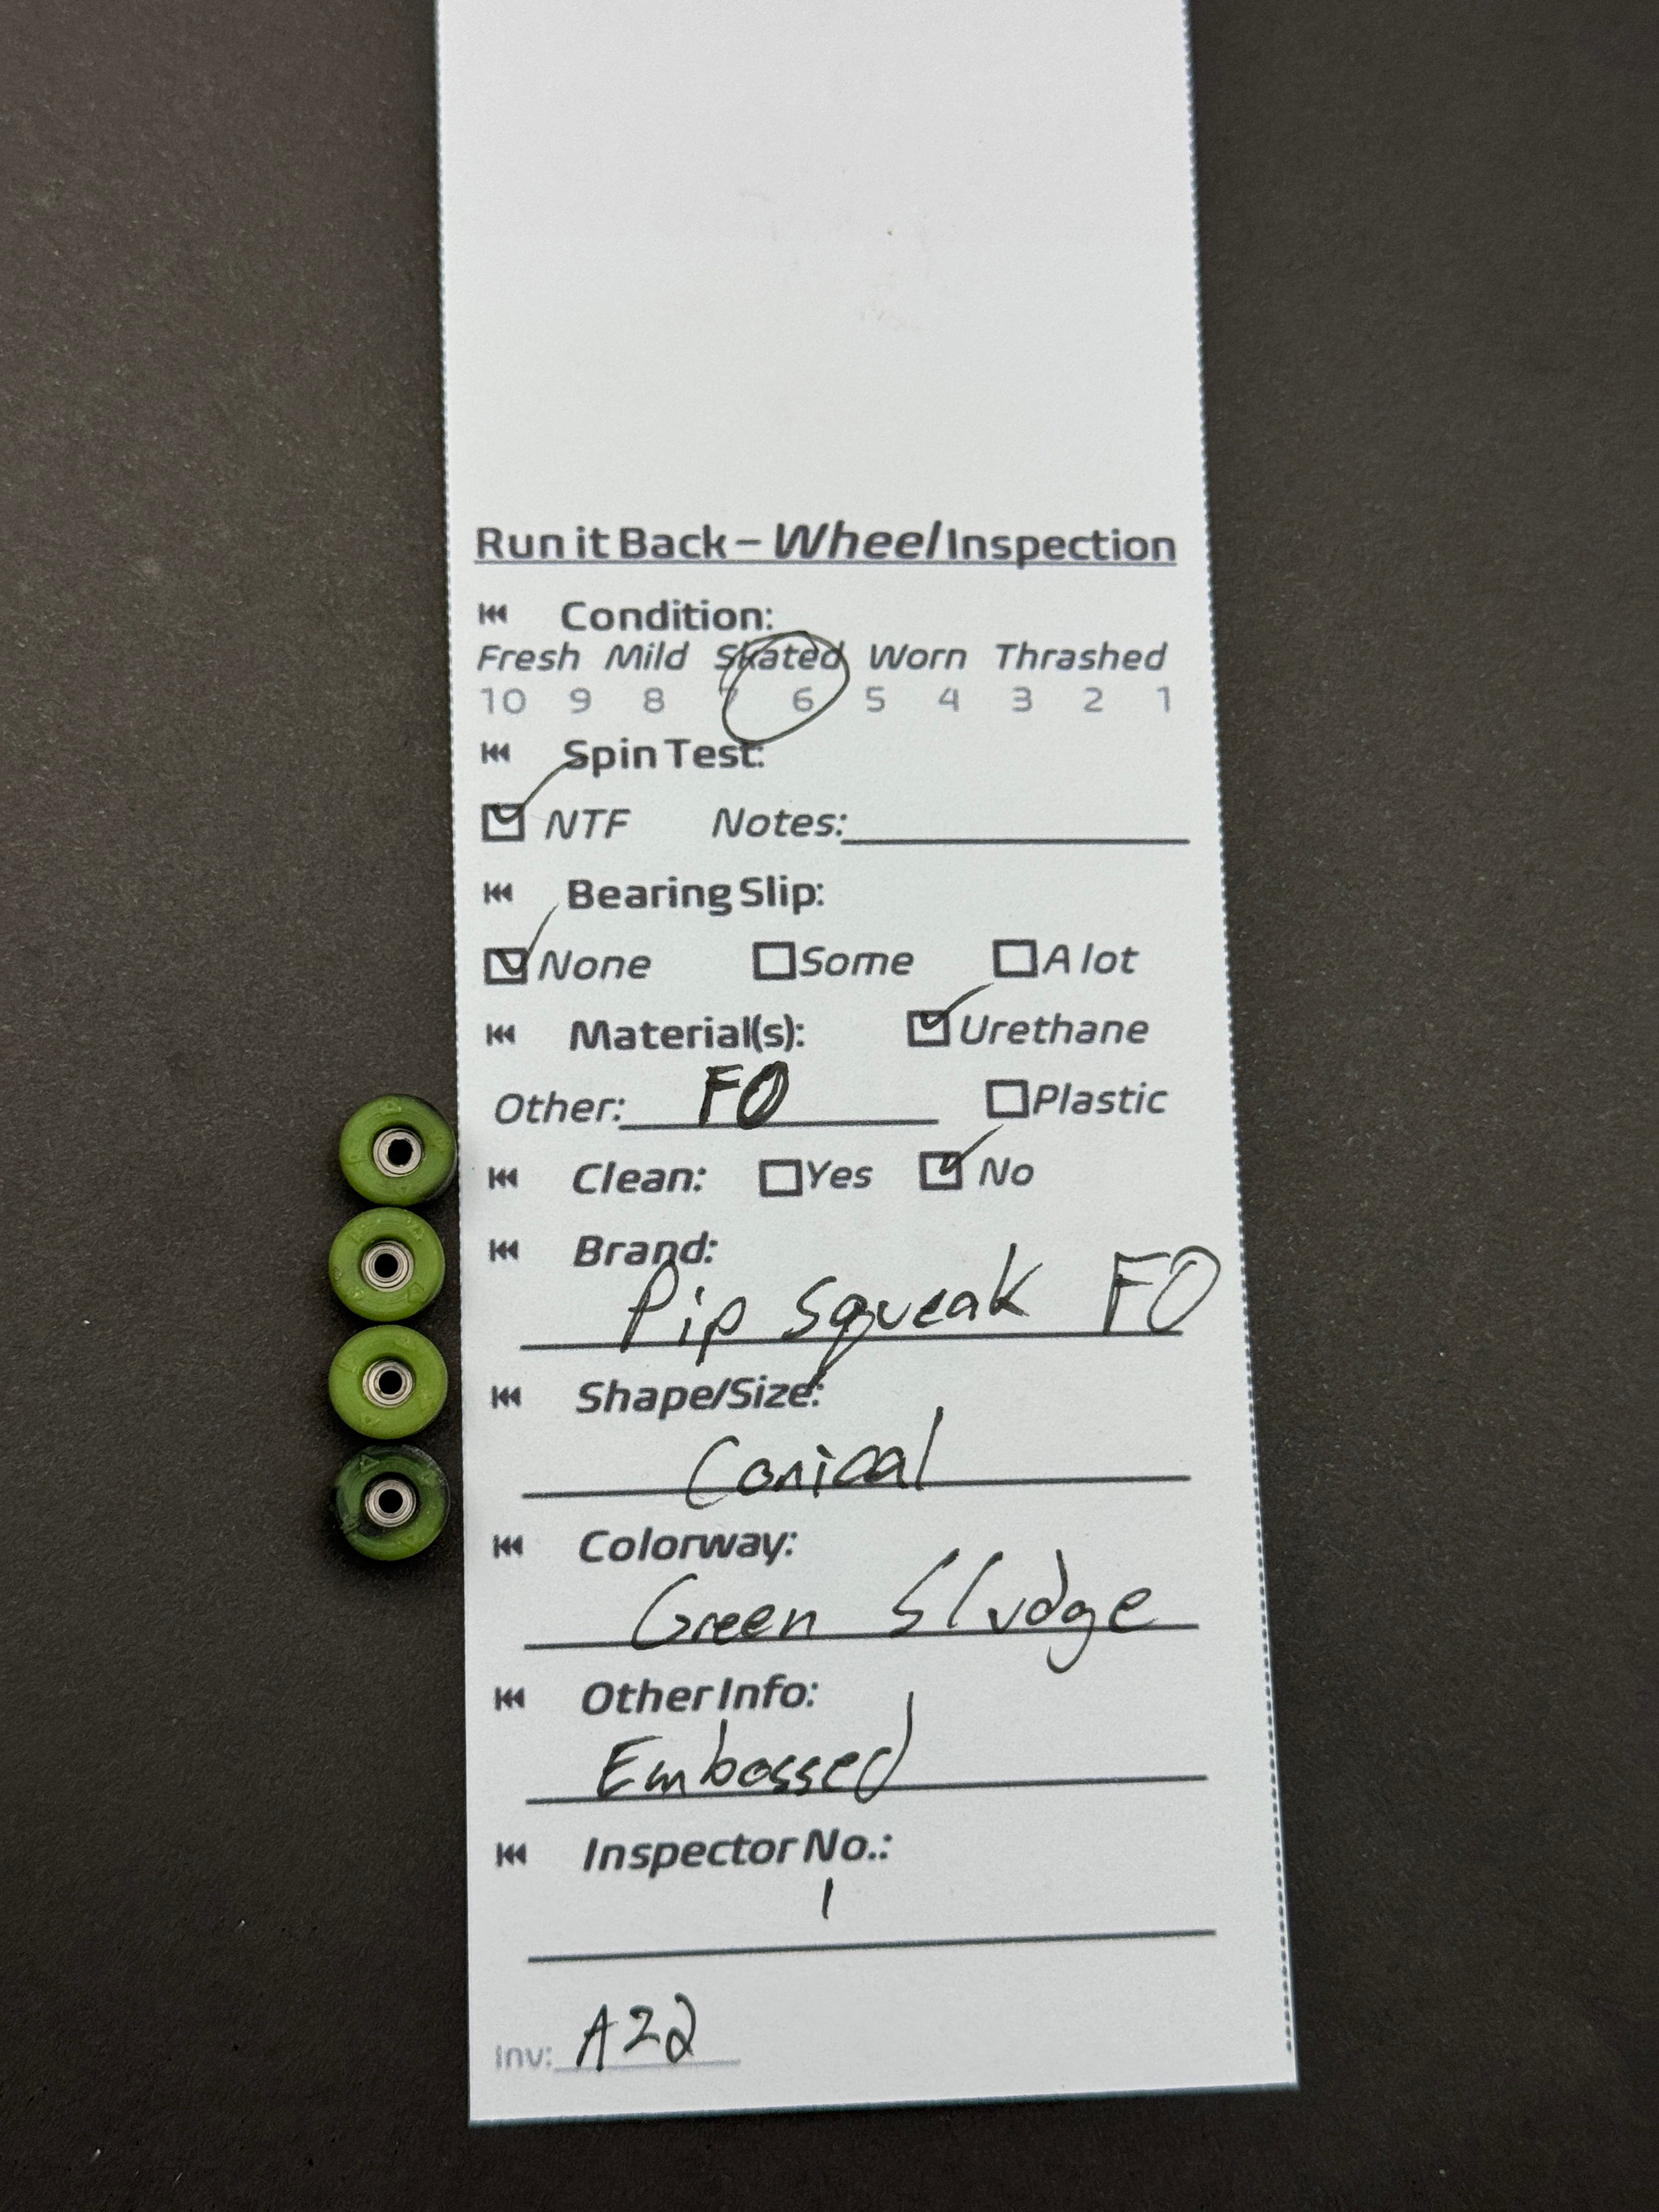 Run it Back – Wheel Inspection
Condition:
Fresh Mild Skated Worn Thrashed
10 9 8 7 6 5 4 3 2 1
Spin Test:
NTF Notes:
Bearing Slip:
None Some A lot
Material(s): Urethane
Other: FO Plastic
Clean: Yes No
Brand:
Pip Squeak FO
Shape/Size:
Conical
Colorway:
Green Sludge
Other Info:
Embossed
Inspector No.:
1
Inv: A22